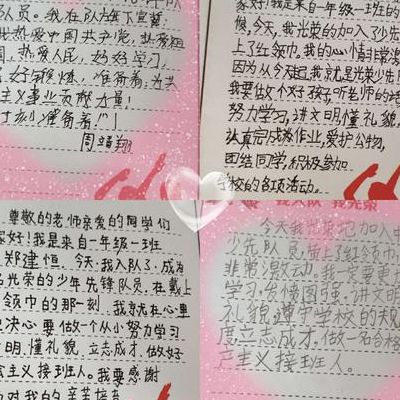 队员。我在队旗下宣誓
热爱中国共产党,热爱祖
国,热爱人民,好好学习,
好好锻炼,准备着:为共
主义事业贡献力量!
时刻准备着!"!
周靖翔
家好!我是来自一年级一班的
候,今天,我光荣的加入了少先
上了红领巾。我的心情非常激
因为从今天起我就是光荣少先
我要做个好孩子,听老师的话
努力学习,讲文明懂礼貌,
认真完成作业,爱护公物,
团结同学,积极参加
学校的各项活动。
尊敬的老师亲爱的同学们
家好!我是来自一年级一班
郑建恒。今天,我入队了,成为
名光荣的少年先锋队员。在戴上
领巾的那一刻,我就在心里
决心要做一个从小努力学习
明,懂礼貌,立志成才,做好
主义接班人。我要感谢
对我的辛苦培养
我入队 我光荣
今天我光荣地加入中
少先队员,戴上了红领巾,
非常激动。我一定要更
学习,发愤图强,讲文明
礼貌,遵守学校的规
度立志成才,做一名合格
产主义接班人。